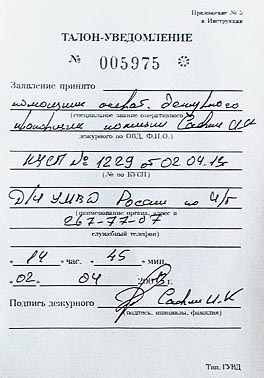 Приложение № 5
к Инструкции
ТАЛОН-УВЕДОМЛЕНИЕ
№ 005975 *
Заявление принято
помощник операт. дежурного
(специальное звание оперативного
прапорщик полиции
дежурного по ОВД, Ф.И.О.)
КУСП № 1229 от 02.04.15
(№ по КУСП)
Д/Ч УМВД России по
(наименование органа, адрес и
267-77-07
служебный телефон)
" 14 " час. " 45 " мин.
" 02 " 04 200
Подпись дежурного И.К
(подпись, инициалы, фамилия)
Тип. ГУВД